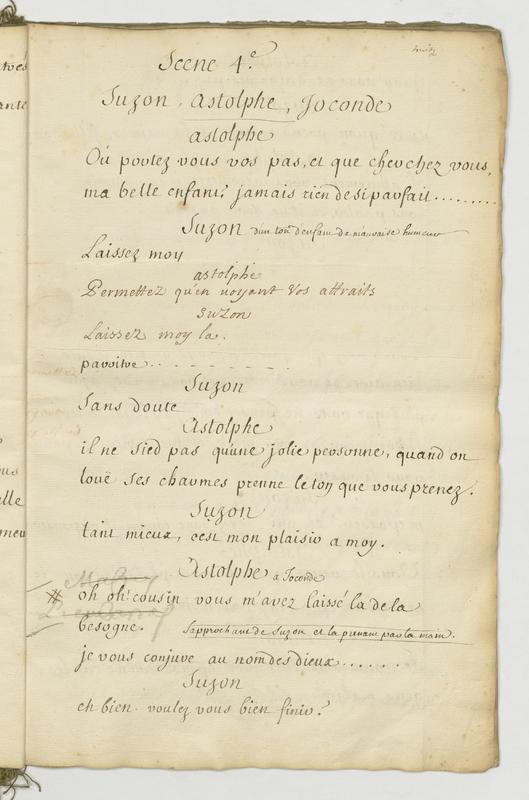 Scene 4.e
Suzon, Astolphe, Joconde
astolphe
Où portez vous vos pas, et que cherchez vous,
ma belle enfant? jamais rien de si parfait..........
Suzon d'un ton d'enfant de mauvaise humeur
Laissez moy
astolphe
Permettez qu'en voyant vos attraits
suzon
Laissez moy la.
paroitre...........
Suzon
Sans doute
Astolphe
il ne sied pas qu'une jolie personne, quand on
louë ses charmes prenne le ton que vous prenez.
Suzon
tant mieux, c'est mon plaisir a moy.
Astolphe a Joconde
# oh oh! cousin vous m'avez laissé la de la
besogne. S'approchant de Suzon et la prenant par la main.
je vous conjure au nom des dieux.......
Suzon
eh bien. voulez vous bien finir?